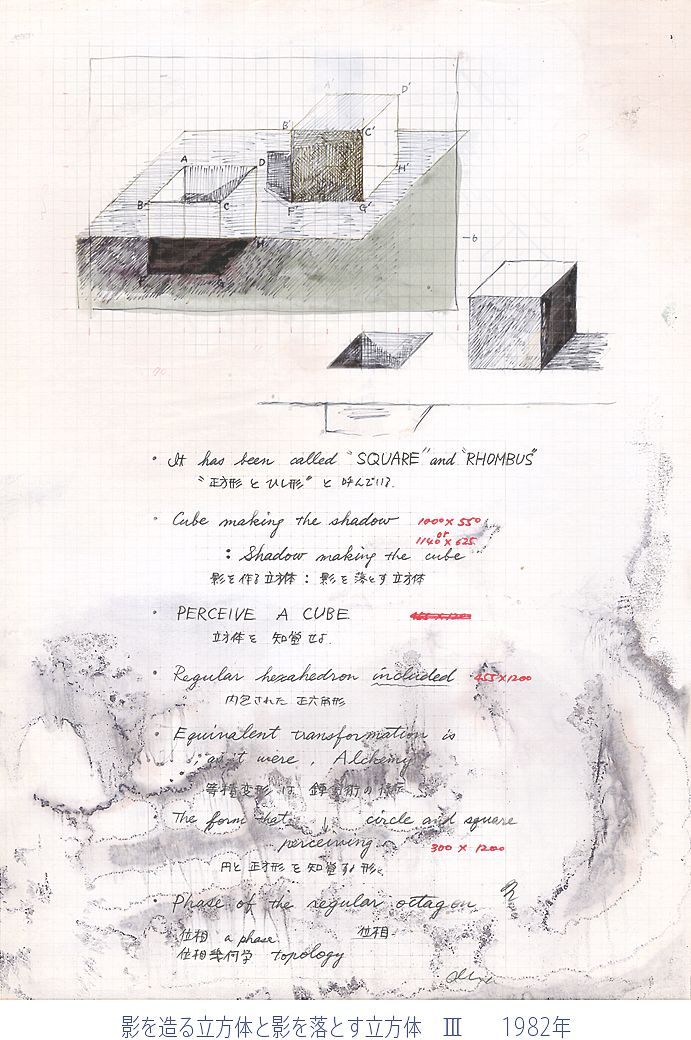 A' D'
B' C'
A D H'
B C F' G'
6
H
F G
• It has been called "SQUARE" and "RHOMBUS"
"正方形 と ひし形" と 呼んでいる.
• Cube making the shadow 1000×550
or
1140×625
: Shadow making the cube
影を作る立方体 : 影を落とす立方体
• PERCEIVE A CUBE.
立方体を 知覚せよ.
• Regular hexahedron included 455×1200
内包された 正六角形
• Equivalent transformation is
as it were, Alchemy
等積変形 は 錬金術の
The form that circle and square
perceiving.
300 × 1200
円と 正方形 を知覚する形.
• Phase of the regular octagon
位相 a phase. 位相
位相幾何学 topology
影を造る立方体と影を落とす立方体 Ⅲ 1982年